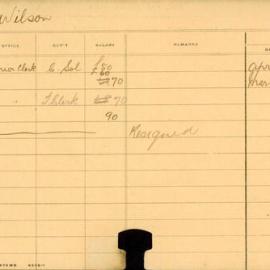 Wilson
OFFICE DEP'T SALARY REMARKS
Clerk C. Sol £50
£60
70
" T. Clerk 70
90
Resigned